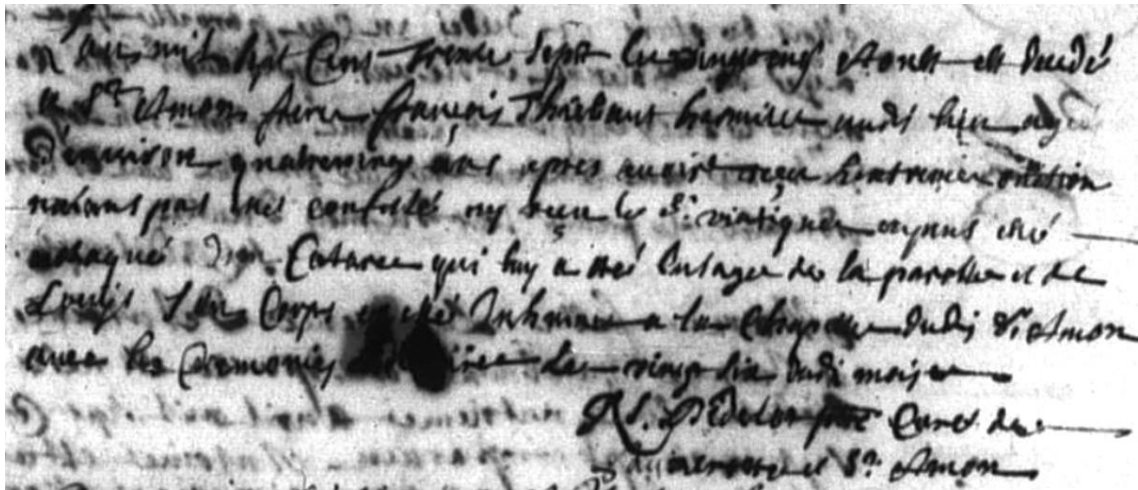 L'an mil sept cens trente sept le vingt cinq d'aoust est decedé
a St Amon frere françois Thiebaut hermitte audit lieu agé
D'environ quatrevingt ans apres avoir reçu L'extreme onction
n'aiant pas été confessé ny reçu le St viatique ayant été
attaqué d'un Catarre qui luy a oté l'usage de la parolle et de
L'ouÿe Son Corps a été Inhumé a la Chapelle dudit St Amon
avec les Ceremonies le vingt six dudit mois
curé de
et St Amon